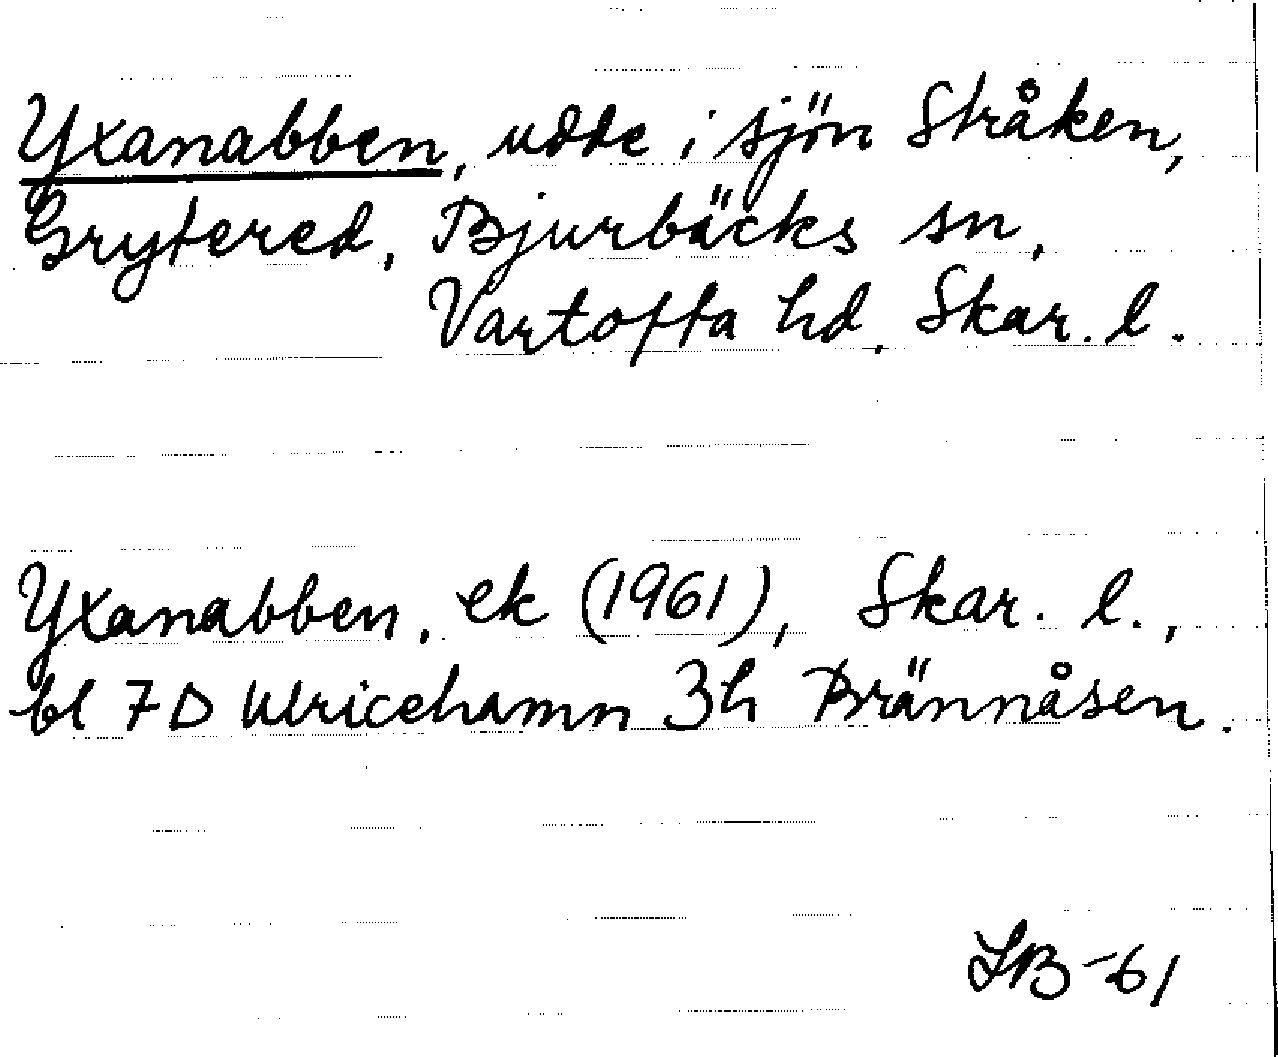 Yxanabben, udde i sjön Stråken,
Grytered, Bjurbäcks sn,
Vartofta hd, Skar. l.
Yxanabben, ek (1961), Skar. l.,
bl 7D Ulricehamn 3h Brännåsen.
LB-61